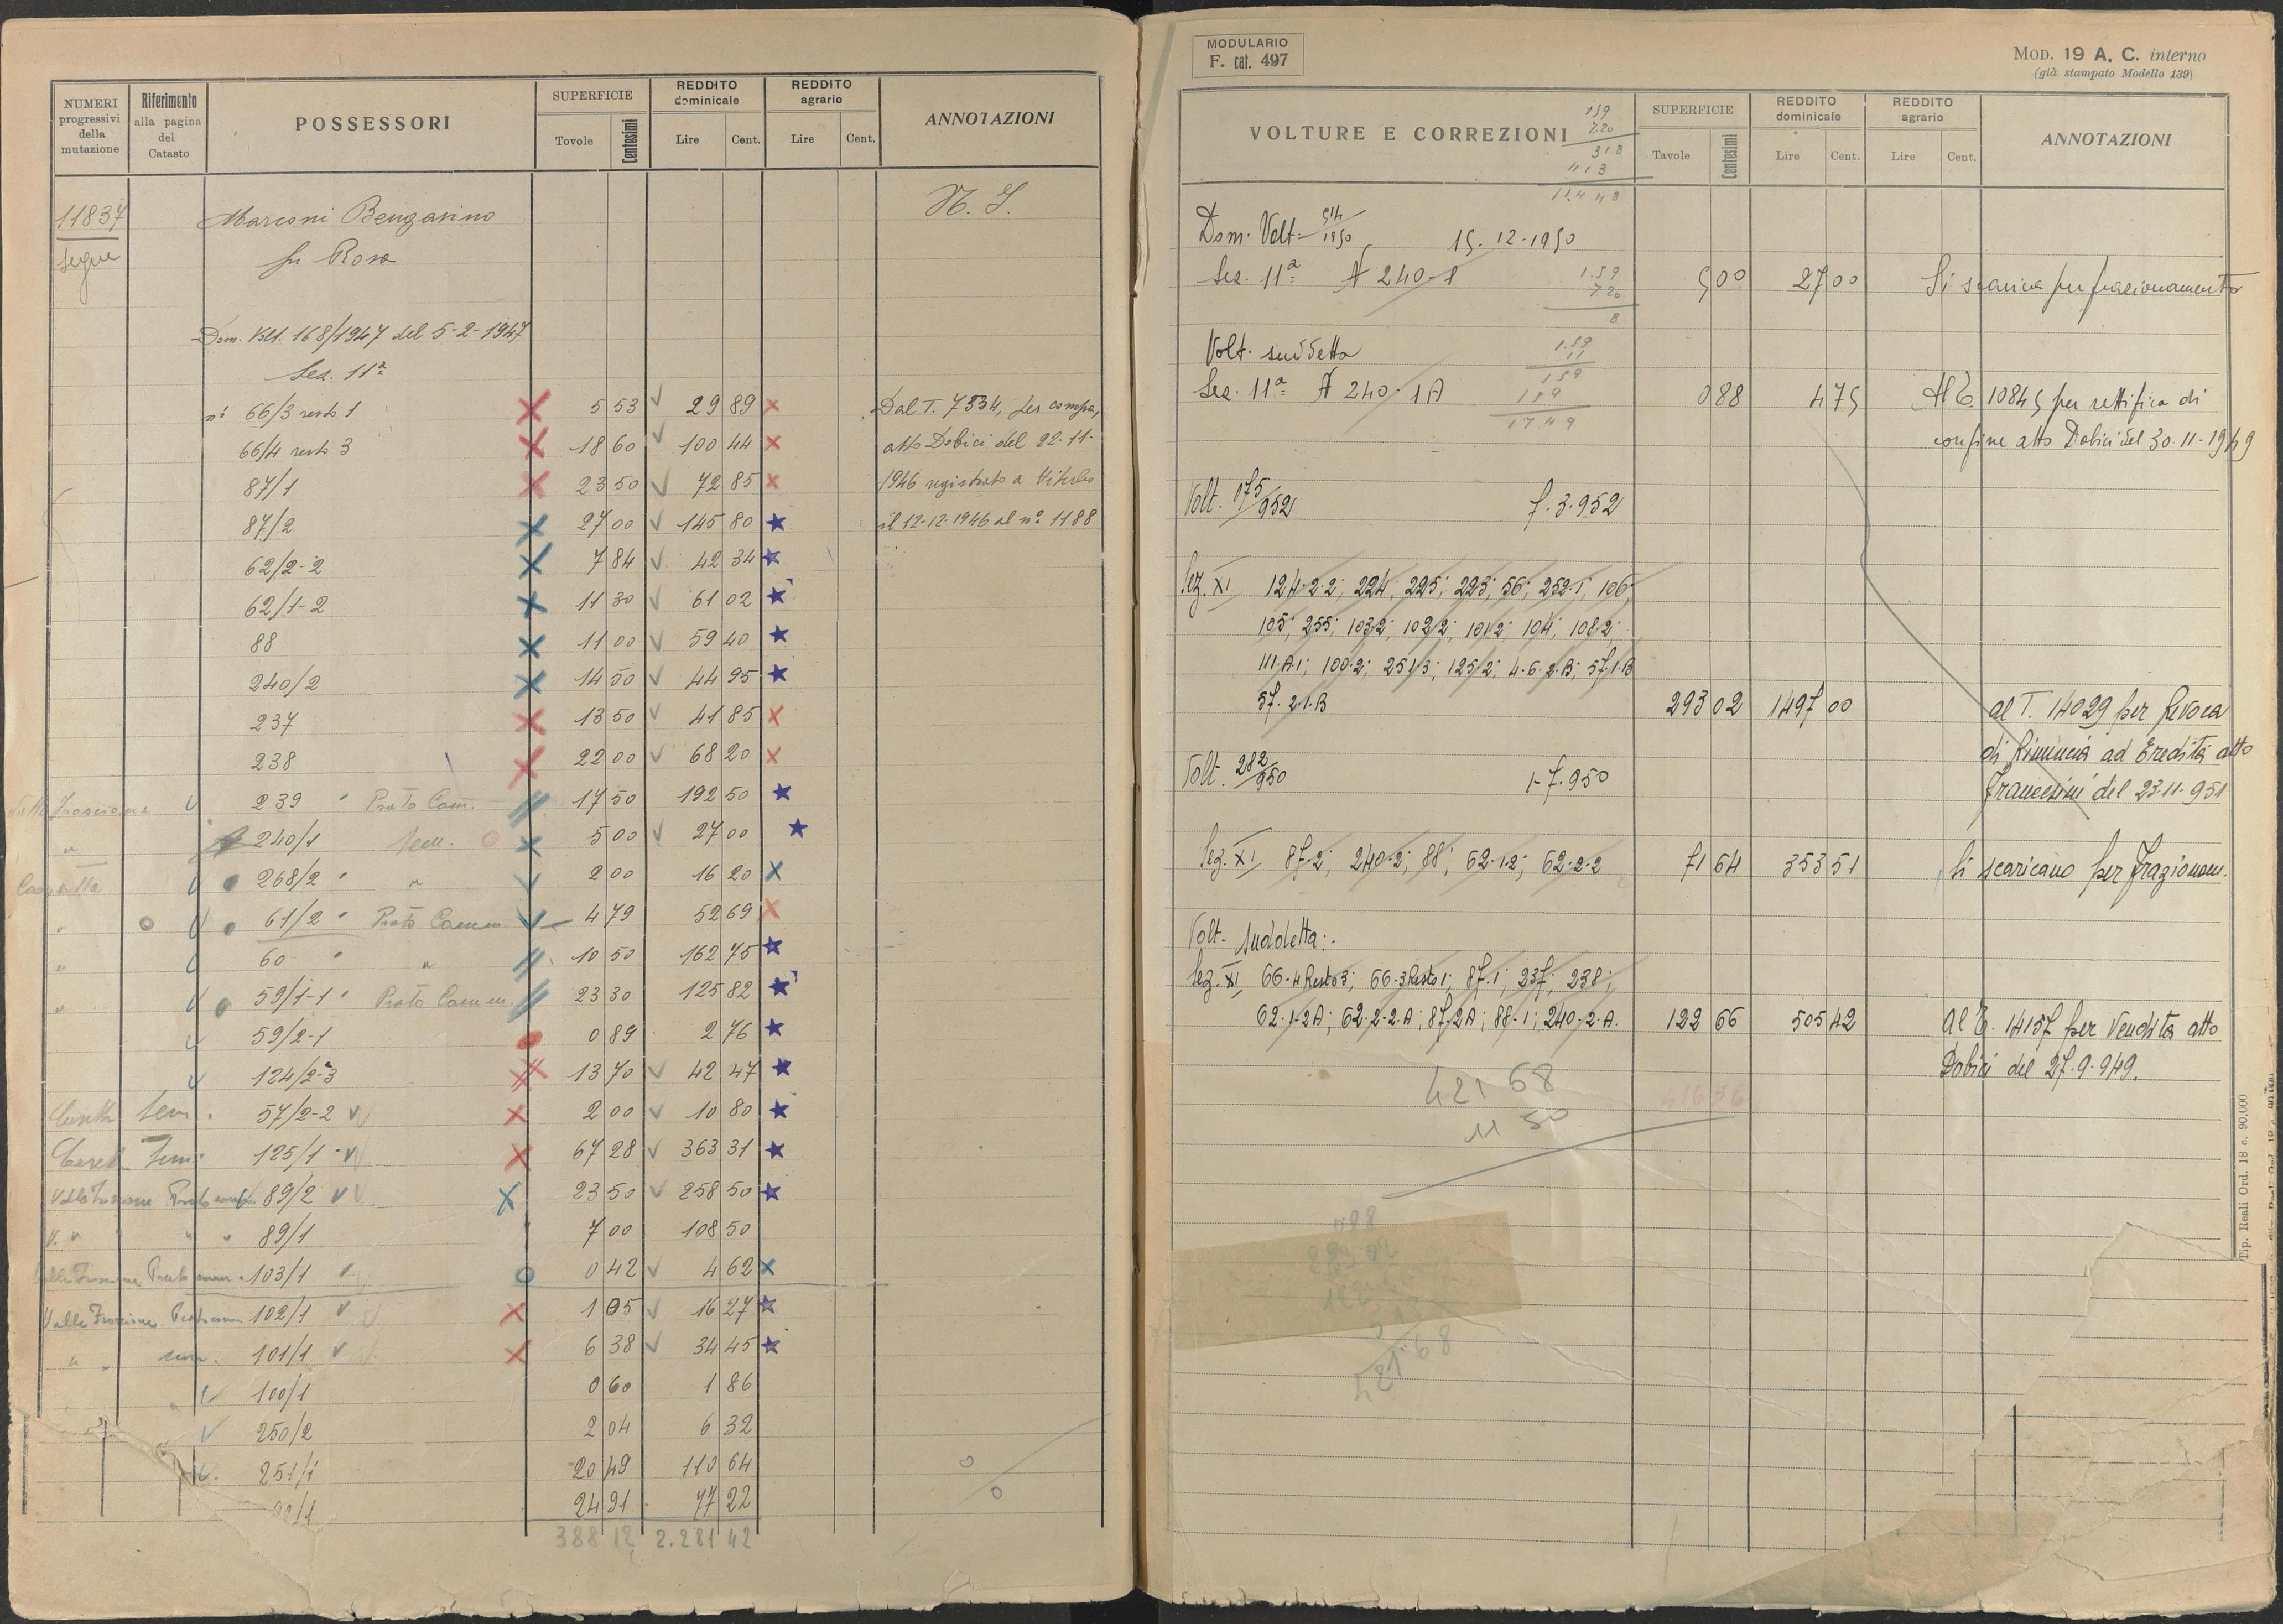 NUMERI progressivi della mutazione
Riferimento alla pagina del Catasto
POSSESSORI
SUPERFICIE
Tovole Centesimi
REDDITO dominicale
Lire Cent.
REDDITO agrario
Lire Cent.
ANNOTAZIONI
11837 Marconi Bengasino N. I.
segue fu Rosa
Dom. Volt. 168/1947 del 5-2-1947
Sez. 11ª
nº 66/3 resto 1 5 53 29 89 Dal T. 7334, per compra,
66/4 resto 3 18 60 100 44 atto Dobici del 22-11-
87/1 23 50 72 85 1946 registrato a Viterbo
87/2 27 00 145 80 il 12-12-1946 al nº 1188
62/2-2 7 84 42 34
62/1-2 11 30 61 02
88 11 00 59 40
240/2 14 50 44 95
237 13 50 41 85
238 22 00 68 20
239 " Prato Com. 17 50 192 50
" 240/1 Sem. 5 00 27 00
268/2 " " 2 00 16 20
" 61/2 " Prato Comm. 4 79 52 69
" 60 " " 10 50 162 75
" 59/1-1 " Prato Comm. 23 30 125 82
59/2-1 0 89 2 76
124/2-3 13 70 42 47
Sem. 57/2-2 2 00 10 80
Sem. 125/1 67 28 363 31
Valle 89/2 23 50 258 50
" " 89/1 7 00 108 50
103/1 0 42 4 62
Valle 102/1 1 05 16 27
" " sem. 101/1 6 38 34 45
100/1 0 60 1 86
250/2 2 04 6 32
251/1 20 49 110 64
24 91 77 22
388 12 2.281 42
MODULARIO
F. cat. 497
MOD. 19 A. C. interno
(già stampato Modello 139)
VOLTURE E CORREZIONI
SUPERFICIE
Tavole Centesimi
REDDITO dominicale
Lire Cent.
REDDITO agrario
Lire Cent.
ANNOTAZIONI
159
7.20
318
1113
114 48
Dom. Volt. 514/1950 15-12-1950
Sez. 11ª N 240-1 5 00 27 00 Si scarica per frazionamento
1.59
7.20
8
Volt. suddetta
Sez. 11ª N 240-1A 0 88 4 75 Al T. 10845 per rettifica di
confine atto Dobici del 30-11-1949
1.59
11
159
159
1749
Volt. 175/952 7.3.952
Sez. XI 124.2.2; 224; 225; 223; 56; 252.1; 106;
105; 255; 103.2; 102.2; 101.2; 104; 108.2;
111.A.1; 100.2; 251.3; 125.2; 4.6.2.B; 57.1.B
57.2.1.B 293 02 1497 00 al T. 14029 per Revoca
di Rinuncia ad Eredità atto
Francesini del 23.11.951
Volt. 282/950 1-7.950
Sez. XI 87.2; 240.2; 88; 62.1.2; 62.2.2 71 64 353 51 Si scaricano per Frazionam.
Volt. suddetta:.
Sez. XI 66.4 Resto 3; 66.3 Resto 1; 87.1; 237; 238;
62.1.2A; 62.2.2.A; 87.2A; 88.1; 240.2.A. 122 66 505 42 al T. 14157 per Vendita atto
Dobici del 27.9.949.
421 68
11 50
088
421.68
Tip. Reali Ord. 18 c. 90.000